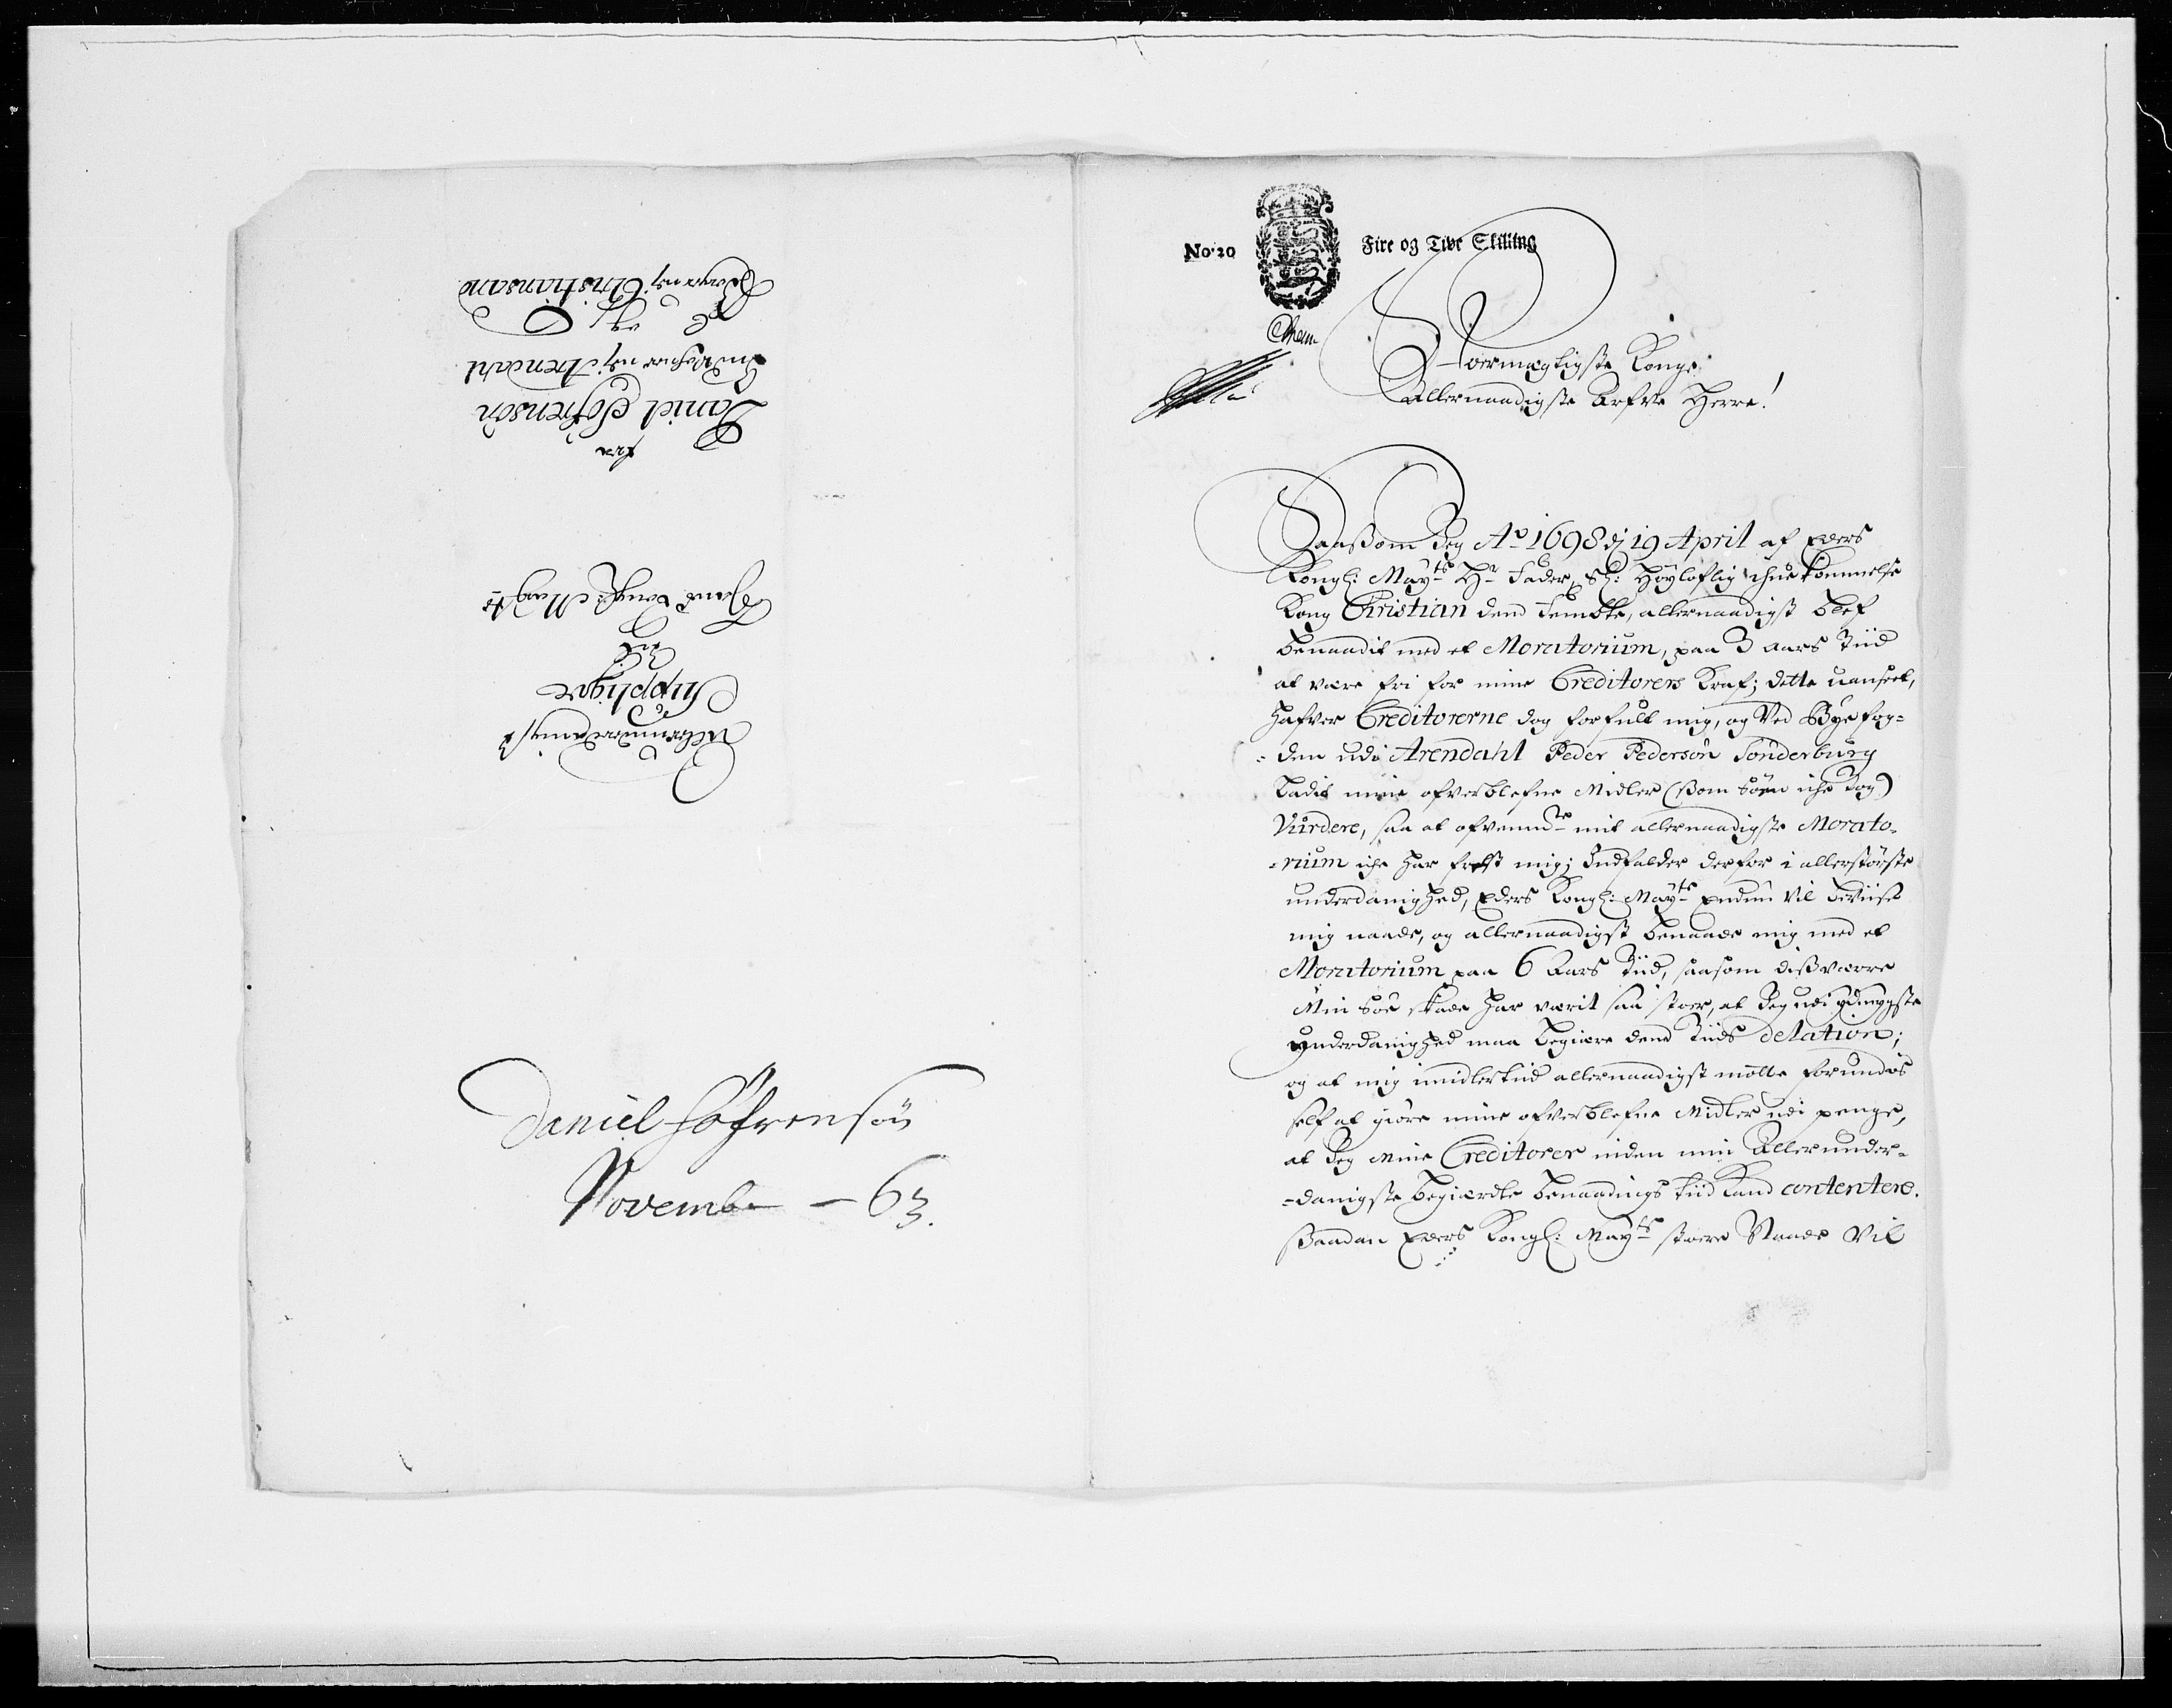 Allerunderdanigst
Supplique
till
Hans Kongl: May:ts
fra
Daniel Søfrensön
Indvohner udj Arendahl
Borger udj Christiansand
Daniel Söfrensön
Novemb – 63.
No. 20 Fire og Tive Skilling
Stormægtigste Konge
Allernaadigste Arfve Herre!
Saasom Jeg Ao 1698 dj 19 April af Eders
Kongl: May:ts Hr Fader, Sl: Høyloflig ihukommelse
Kong Christian dend Femte, allernaadigst blef
benaadit med et Moratorium, paa 3 aars Tiid
at være fri for mine Creditorers Kraf; dette uanseet,
hafver Creditorerne dog forfult mig, og ved Byefog-
-den udi Arendahl Peder Pedersøn Sönderburg
ladit mine ofverblefne Midler (som børn iche tog)
Vürdere, saa at ofvenmte mit allernaadigste Morato-
-rium iche har frelst mig; Indfalder derfor i allerstörste
underdanighed, Eders Kongl: May:ts endnu vil beviise
mig naade, og allernaadigst benaade mig med et
Moratorium paa 6 Aars Tiid, saasom dissværre
Min Söe skade har værit saa stoer, at Jeg udi ydmygste
Underdanighed maa begiære dend Tiids delation;
og at mig imidlertid allernaadigst motte forundis
self at giøre mine ofverblefne Midler udi penge,
at Jeg mine Creditorer inden min Allerunder-
-danigste begiærdte benaadings tiid kand contentere.
Saadan Eders Kongl: May:ts stoere Naade vil